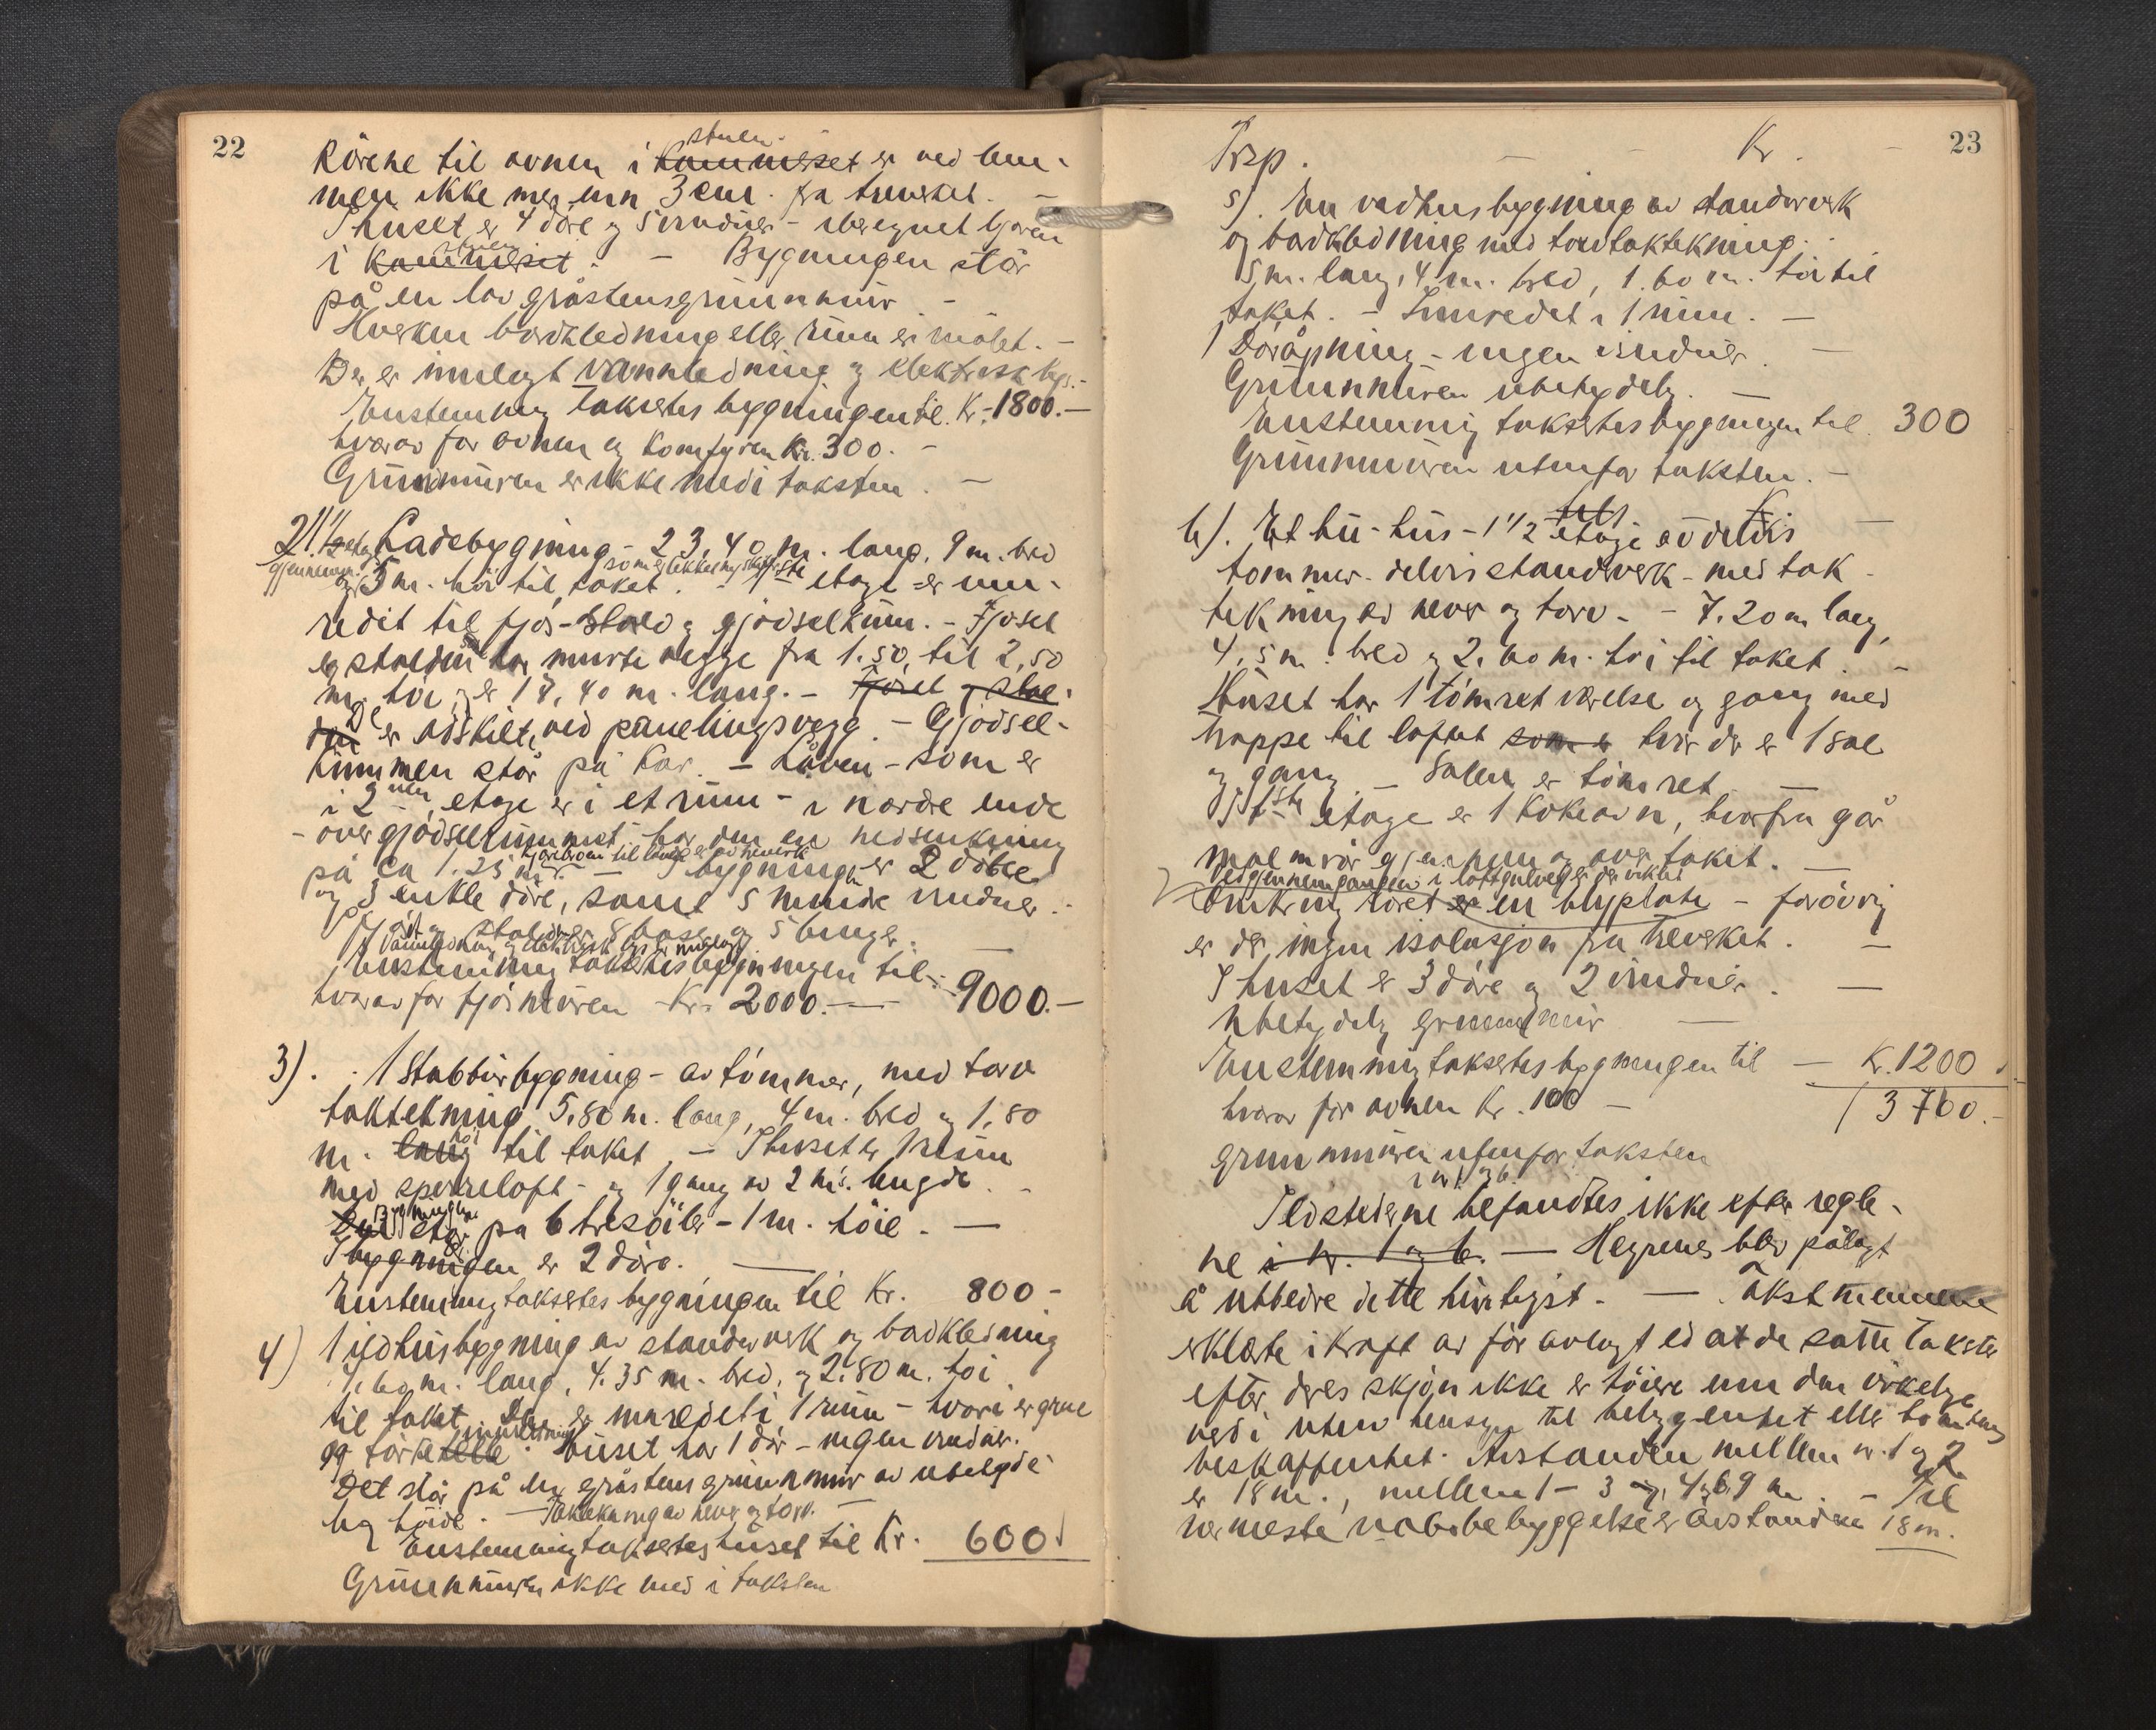 22
stuen
Rörene til ovnen i kammeret er ved lem-
men ikke mer enn 3 cm. fra treverket. -
I huset er 4 döre og 5 vinduer - iberegnet
i kammeret - Bygningen står
stuen
på en lav gråstensgrunnmur -
Hverken bordkledning eller rum er malet. -
Der er innlagt vannledning og elektrisk lys. -
Enstemmig taksertes bygningen til Kr. 1800. -
hvorav for ovnen og komfyren Kr. 300. -
Grunnmuren er ikke med i taksten. -
2) 1 1/2 etg Ladebygning - 23,40 m. lang, 9 m. bred
gjennem-
og 5 m. höi til taket. - 1ste etage - er inn-
redet til fjös - stald og gjödselrum. - Fjöset
og stalden har murte vegge fra 1.50 til 2,50
m. höi og er 17,40 m. lang. - Fjöset og stal-
den De er adskilt ved panelingsvegg. - Gjödsel-
rummen står på kar. - Låven - som er
i 2nen etage er i et rum - i nordre ende
- over gjödselrummet har den en nedsenkning
på ca 1.25 m. - I bygningen er 2 doble
og 3 enkle döre, samt 5 mindre vinduer. -
I fjös og stalden er 8 båse og 5 binger.
Vannledning og elektrisk lys er innlagt.
Enstemmig taksertes bygningen til - 9000. -
hvorav for fjösmuren Kr. 2000. -
3). 1 Stabbursbygning - av tömmer, med torv
taktekning 5,80 m. lang, 4 m. bred og 1,80
höi
m. lang til taket. - I huset er 1 rum
med sperreloft - og 1 gang av 2 m's. lengde. -
Bygningen
står på 6 tresöiler - 1 m. höie. -
I bygningen er 2 döre. -
Enstemmig taksertes bygningen til Kr. 800 -
4) 1 ildhusbygning av standverk og bordkledning
7,60 m. lang, 4.35 m. bred, og 2.80 m. höi
til taket. Den er innredet i 1 rum - hvori er grue
og törkeelle. Huset har 1 dör - ingen vinduer.
innretning
Det står på en gråstens grunnmur av ubetyde-
lig höide. - Taktekning av never og torv.
Enstemmig taksertes huset til Kr. 600
Grunnmuren ikke med i taksten
23
Trsp. - - Kr. -
5). En vedhusbygning av standverk
og bordkledning med torvtaktekning.
5 m. lang, 4 m. bred, 1.60 m. höi til
taket. - Innredet i 1 rum. -
1 Döråpning - ingen vinduer. -
Grunnmuren ubetydelig. -
Enstemmig taksertes bygningen til 300
Grunnmuren utenfor taksten. -
6). Et - hus - 1 1/2 etage av delvis
tömmer - delvis standverk - med tak-
tekning av never og torv. - 7.20 m lang,
4,5 m. bred og 2.60 m. höi til taket. -
Huset har 1 tömret værelse og gang med
trappe til loftet som er hvor der er 1 sal
og gang - Salen er tömret -
I 1ste etage er 1 kokeovn, hvorfra går
malmrör gjennem og over taket. -
Ved gjennemgangen i loftgulvet er der
omkring röret er en blyplate - forövrig
er der ingen isolasjon fra treverket. -
I huset er 3 döre og 2 vinduer. -
Ubetydelig grunnmur -
Enstemmig taksertes bygningen til - Kr. 1200
hvorav for ovnen Kr. 100 - 13700. -
grunnmuren utenfor taksten
i nr 1 og 6
Ildstederne befandtes ikke efter regle-
ne i nr. 1 og 6. - Hegrenes blev pålagt
å utbedre dette hurtigst. - Takstmennene
erklærte i kraft av för avlagt ed at de satte takster
efter deres skjön ikke er höiere enn den virkelige
verdi uten hensyn til beliggenhet eller tomtens
beskaffenhet. Avstanden mellem nr. 1 og 2
er 18 m., mellem 1 - 3 og 4 og 6 9 m. - Til
nærmeste nabobebyggelse er avstanden 18 m.